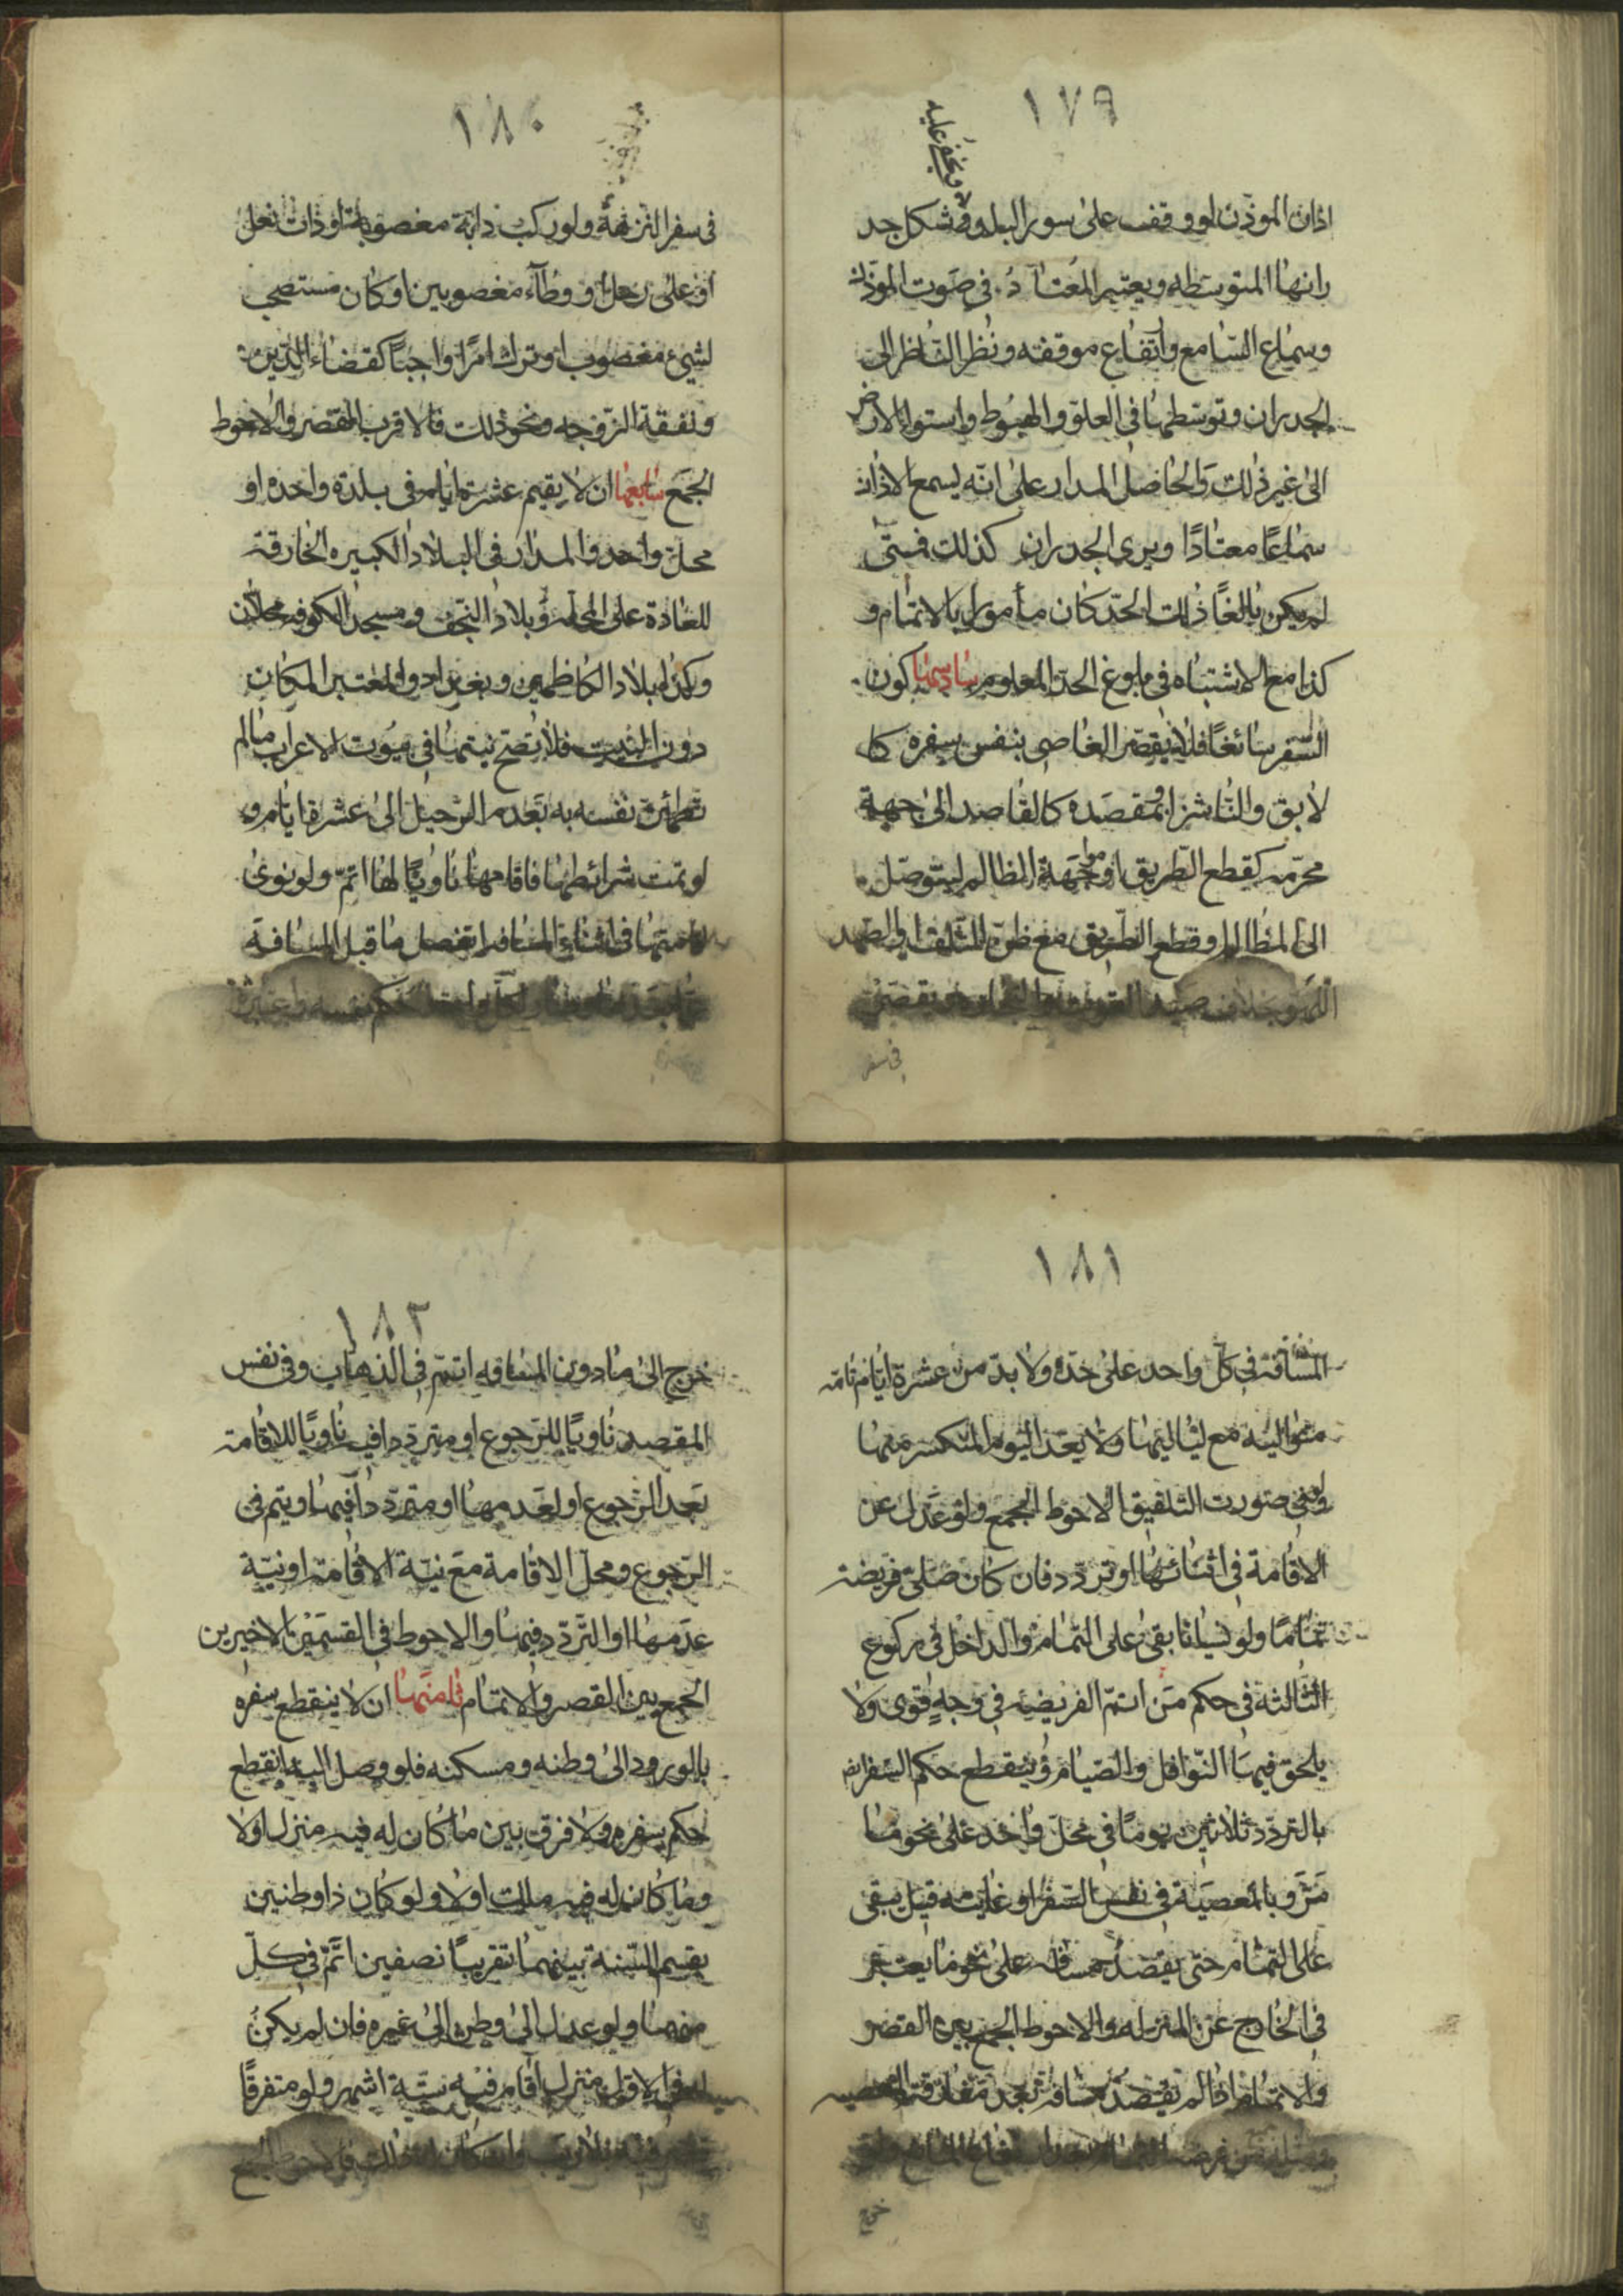 ١٧٩
ويخفى عليه
اذان الموذن لو وقف على سور البلد وشكل جد
رانها المتوسطه ويعتبر المعتاد في صوت الموذن
وسماع السامع وارتفاع موقفه ونظر الناظر الى
الجدران وتوسطها في العلو والهبوط واستواء الارض
الى غير ذلك والحاصل المدار على انه يسمع الاذان
سماعًا معتادًا ويرى الجدران كذلك فمتى
لم يكن بالغًا ذلك الحد كان مأمورا بالاتمام و
كذا مع الاشتباه في بلوغ الحد المعلوم سادسها كون
السفر سائغًا فلا يقصر العاصي بنفس سفره كا
لابق والناشز او بمقصده كالقاصد الى جهة
محرمة كقطع الطريق او مواجهة الظالم ليتوصل
الى المظالم وقطع الطريق مع ظن التلف والصيد
اللهو بخلاف صيد القوت
في سفر
١٨٠
في سفر النزهة ولو ركب دابة مغصوبة او ذات نعل
او على رحل او وطاء مغصوبين او كان مستصحب
لشيء مغصوب او ترك امرًا واجبًا كقضاء الدين
ونفقة الزوجه ونحو ذلك فالاقرب القصر والاحوط
الجمع سابعها ان لا يقيم عشرة ايام في بلدة واحده او
محل واحد والمدار في البلاد الكبيره الخارقة
للعادة على المحله وبلاد النجف ومسجد الكوفه محلان
وكذا بلاد الكاظمين وبغداد والمعتبر المكان
دون البيت فلا تصح نيتها في بيوت الاعراب مالم
تطمئن نفسه به بعدم الرحيل الى عشرة ايام و
لو تمت شرائطها فاقامها ناويًا لها اتم ولو نوى
اقامتها في اثناء المسافه انفصل ما قبل المسافة
عما بعدها
١٨١
المسافة في كل واحد على حده ولا بد من عشرة ايام تامة
متوالية مع لياليها ولا يعد اليوم المنكسر منها
وفي صورت التلفيق الاحوط الجمع ولو عدل عن
الاقامة في اثنائها او تردد فان كان صلى فريضة
تمامًا ولو نسيانا بقي على التمام والداخل في ركوع
الثالثة في حكم من اتم الفريضه في وجه قوى ولا
يلحق فيها النوافل والصيام وينقطع حكم السفر ايض
بالتردد ثلاثين يومًا في محل واحد على نحو ما
مر وبالمعصية في نفس السفر او غايته قيل يبقى
على التمام حتى يقصد مسافه على نحو ما يعتبر
في الخارج عن المنزله والاحوط الجمع بين القصر
والاتمام اذا لم يقصد مسافه بعد مفارقته المعصيه
خرج
١٨٢
خرج الى مادون المسافه اتم في الذهاب وفي نفس
المقصد ناويًا للرجوع او مترددا فيه ناويًا للاقامة
بعد الرجوع او لعدمها او مترددا فيها ويتم في
الرجوع ومحل الاقامة مع نية الاقامة او نية
عدمها او التردد فيها والاحوط في القسمين الاخيرين
الجمع بين القصر والاتمام ثامنها ان لا ينقطع سفره
بالورود الى وطنه ومسكنه فلو وصل اليه انقطع
حكم سفره ولا فرق بين ما كان له فيه منزل اولا
وما كان له فيه ملك اولا ولو كان ذا وطنين
يقسم السنة بينهما تقريبًا نصفين اتم في كل
منهما ولو عدل الى وطن الى غيره فان لم يكن
له في الاول منزل اقام فيه ستة اشهر ولو متفرقًا
فالاحوط الجمع